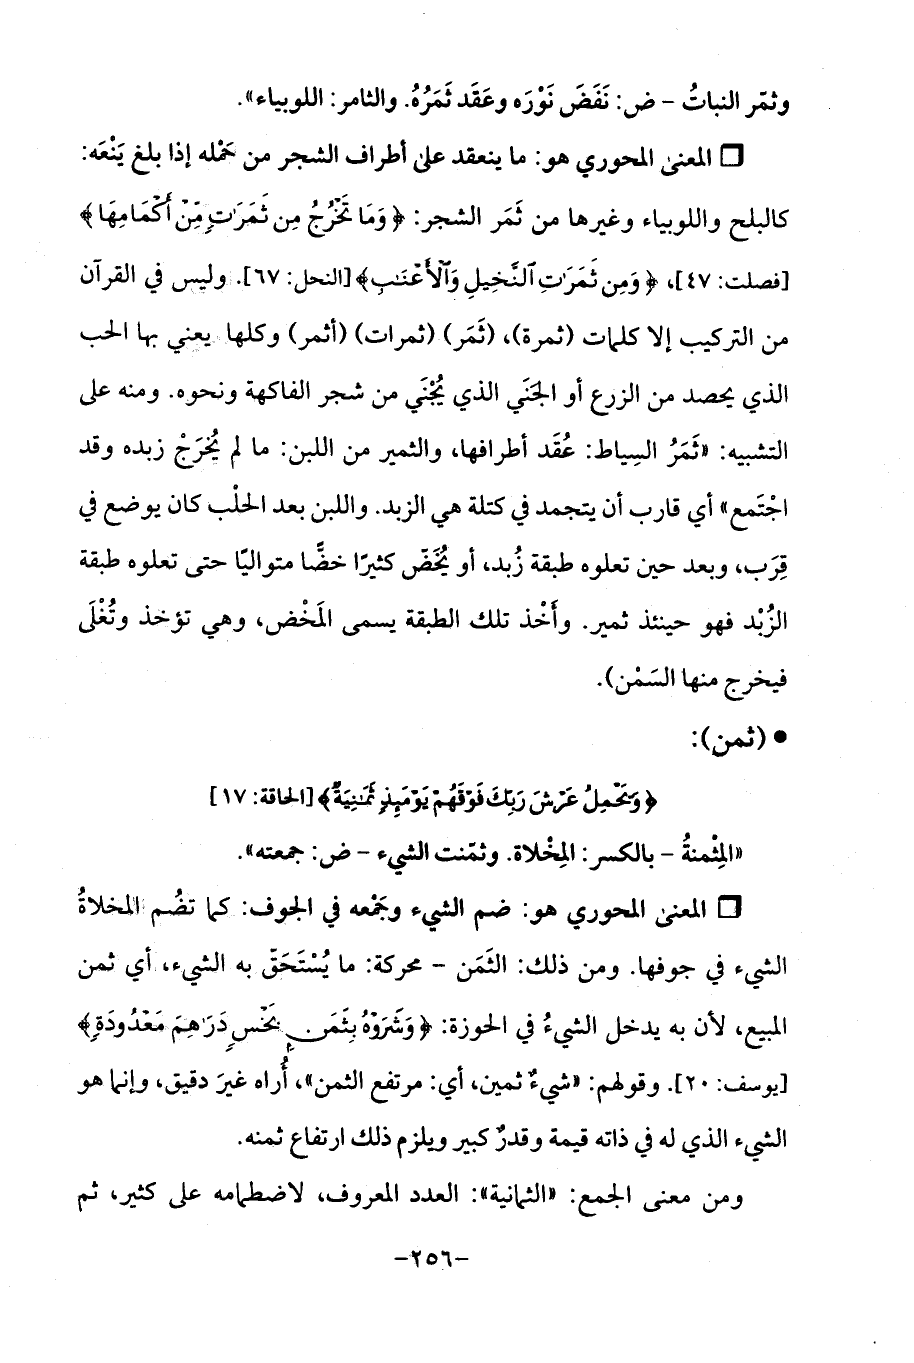 وثمّر النباتُ – ض: نَفَضَ نَوْرَه وعَقَد ثَمَرُهُ. والثامر: اللوبياء».
❒ المعنى المحوري هو: ما ينعقد على أطراف الشجر من حَمْله إذا بلغ يَنْعَه:
كالبلح واللوبياء وغيرها من ثَمَر الشجر: ﴿وَمَا تَخْرُجُ مِن ثَمَرَٰتٍ مِّنْ أَكْمَامِهَا﴾
[فصلت: ٤٧]، ﴿وَمِن ثَمَرَٰتِ ٱلنَّخِيلِ وَٱلْأَعْنَٰبِ﴾[النحل: ٦٧]. وليس في القرآن
من التركيب إلا كلمات (ثمرة)، (ثَمَر) (ثمرات) (أثمر) وكلها يعني بها الحب
الذي يحصد من الزرع أو الجَنَي الذي يُجْنَي من شجر الفاكهة ونحوه. ومنه على
التشبيه: «ثَمَرُ السِياط: عُقَد أطرافها، والثمير من اللبن: ما لم يُخرَجْ زبده وقد
اجْتَمع» أي قارب أن يتجمد في كتلة هي الزبد. واللبن بعد الحلْب كان يوضع في
قِرَب، وبعد حين تعلوه طبقة زُبد، أو يُخَضّ كثيرًا خضًّا متواليًا حتى تعلوه طبقة
الزُبْد فهو حينئذ ثمير. وأَخْذ تلك الطبقة يسمى المَخْض، وهي تؤخذ وتُغْلَى
فيخرج منها السَمْن).
● (ثمن):
﴿وَيَحْمِلُ عَرْشَ رَبِّكَ فَوْقَهُمْ يَوْمَئِذٍ ثَمَٰنِيَةٌ﴾[الحاقة: ١٧]
«المِثْمنةُ – بالكسر: المِخْلاة. وثمّنت الشيء – ض: جمعته».
❒ المعنى المحوري هو: ضم الشيء وجَمْعه في الجوف: كما تضُم المخلاةُ
الشيء في جوفها. ومن ذلك: الثَمَن – محركة: ما يُسْتَحَقّ به الشيء، أي ثمن
المبيع، لأن به يدخل الشيءُ في الحوزة: ﴿وَشَرَوْهُ بِثَمَنٍۭ بَخْسٍ دَرَٰهِمَ مَعْدُودَةٍ﴾
[يوسف: ٢٠]. وقولهم: «شيءٌ ثمين، أي: مرتفع الثمن»، أُراه غيرَ دقيق، وإنما هو
الشيء الذي له في ذاته قيمة وقدرٌ كبير ويلزم ذلك ارتفاع ثمنه.
ومن معنى الجمع: «الثمانية»: العدد المعروف، لاضطمامه على كثير، ثم
–٢٥٦–